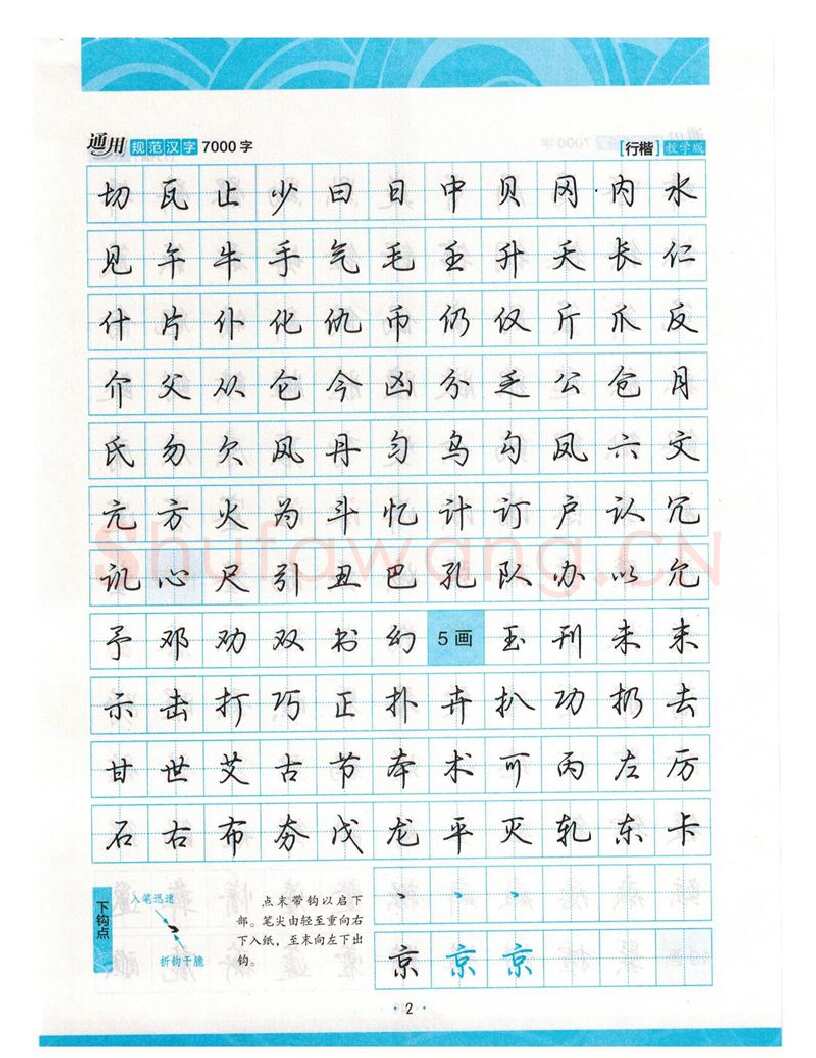 通用 规范汉字 7000字 [行楷] 教学版
切 瓦 止 少 曰 日 中 贝 冈 内 水
见 午 牛 手 气 毛 壬 升 夭 长 仁
什 片 仆 化 仇 币 仍 仅 斤 爪 反
介 父 从 仑 今 凶 分 乏 公 仓 月
氏 勿 欠 风 丹 匀 乌 勾 凤 六 文
亢 方 火 为 斗 忆 计 订 户 认 冗
讥 心 尺 引 丑 巴 孔 队 办 以 允
予 邓 劝 双 书 幻 5画 玉 刊 未 末
示 击 打 巧 正 扑 卉 扒 功 扔 去
甘 世 艾 古 节 本 术 可 丙 左 厉
石 右 布 夯 戊 龙 平 灭 轧 东 卡
下钩点
入笔迅速
折钩干脆
点末带钩以启下
部。笔尖由轻至重向右
下入纸，至末向左下出
钩。
京 京 京
· 2 ·
Shufawang.CN